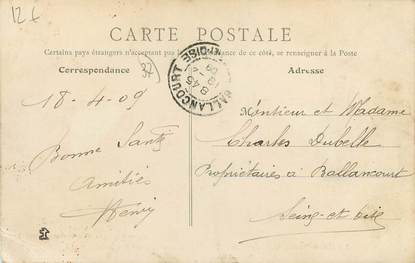 12 €
CARTE POSTALE
Certains pays étrangers n'acceptant pas de ce côté, se renseigner à la Poste
Correspondance
37
Adresse
BALLANCOURT
8 45
18 - 4
09
18-4-09
Monsieur et Madame
Charles Dubelle
Propriétaires à Ballancourt
Seine-et-Oise
Bonne Santé
Amitiés
Henry